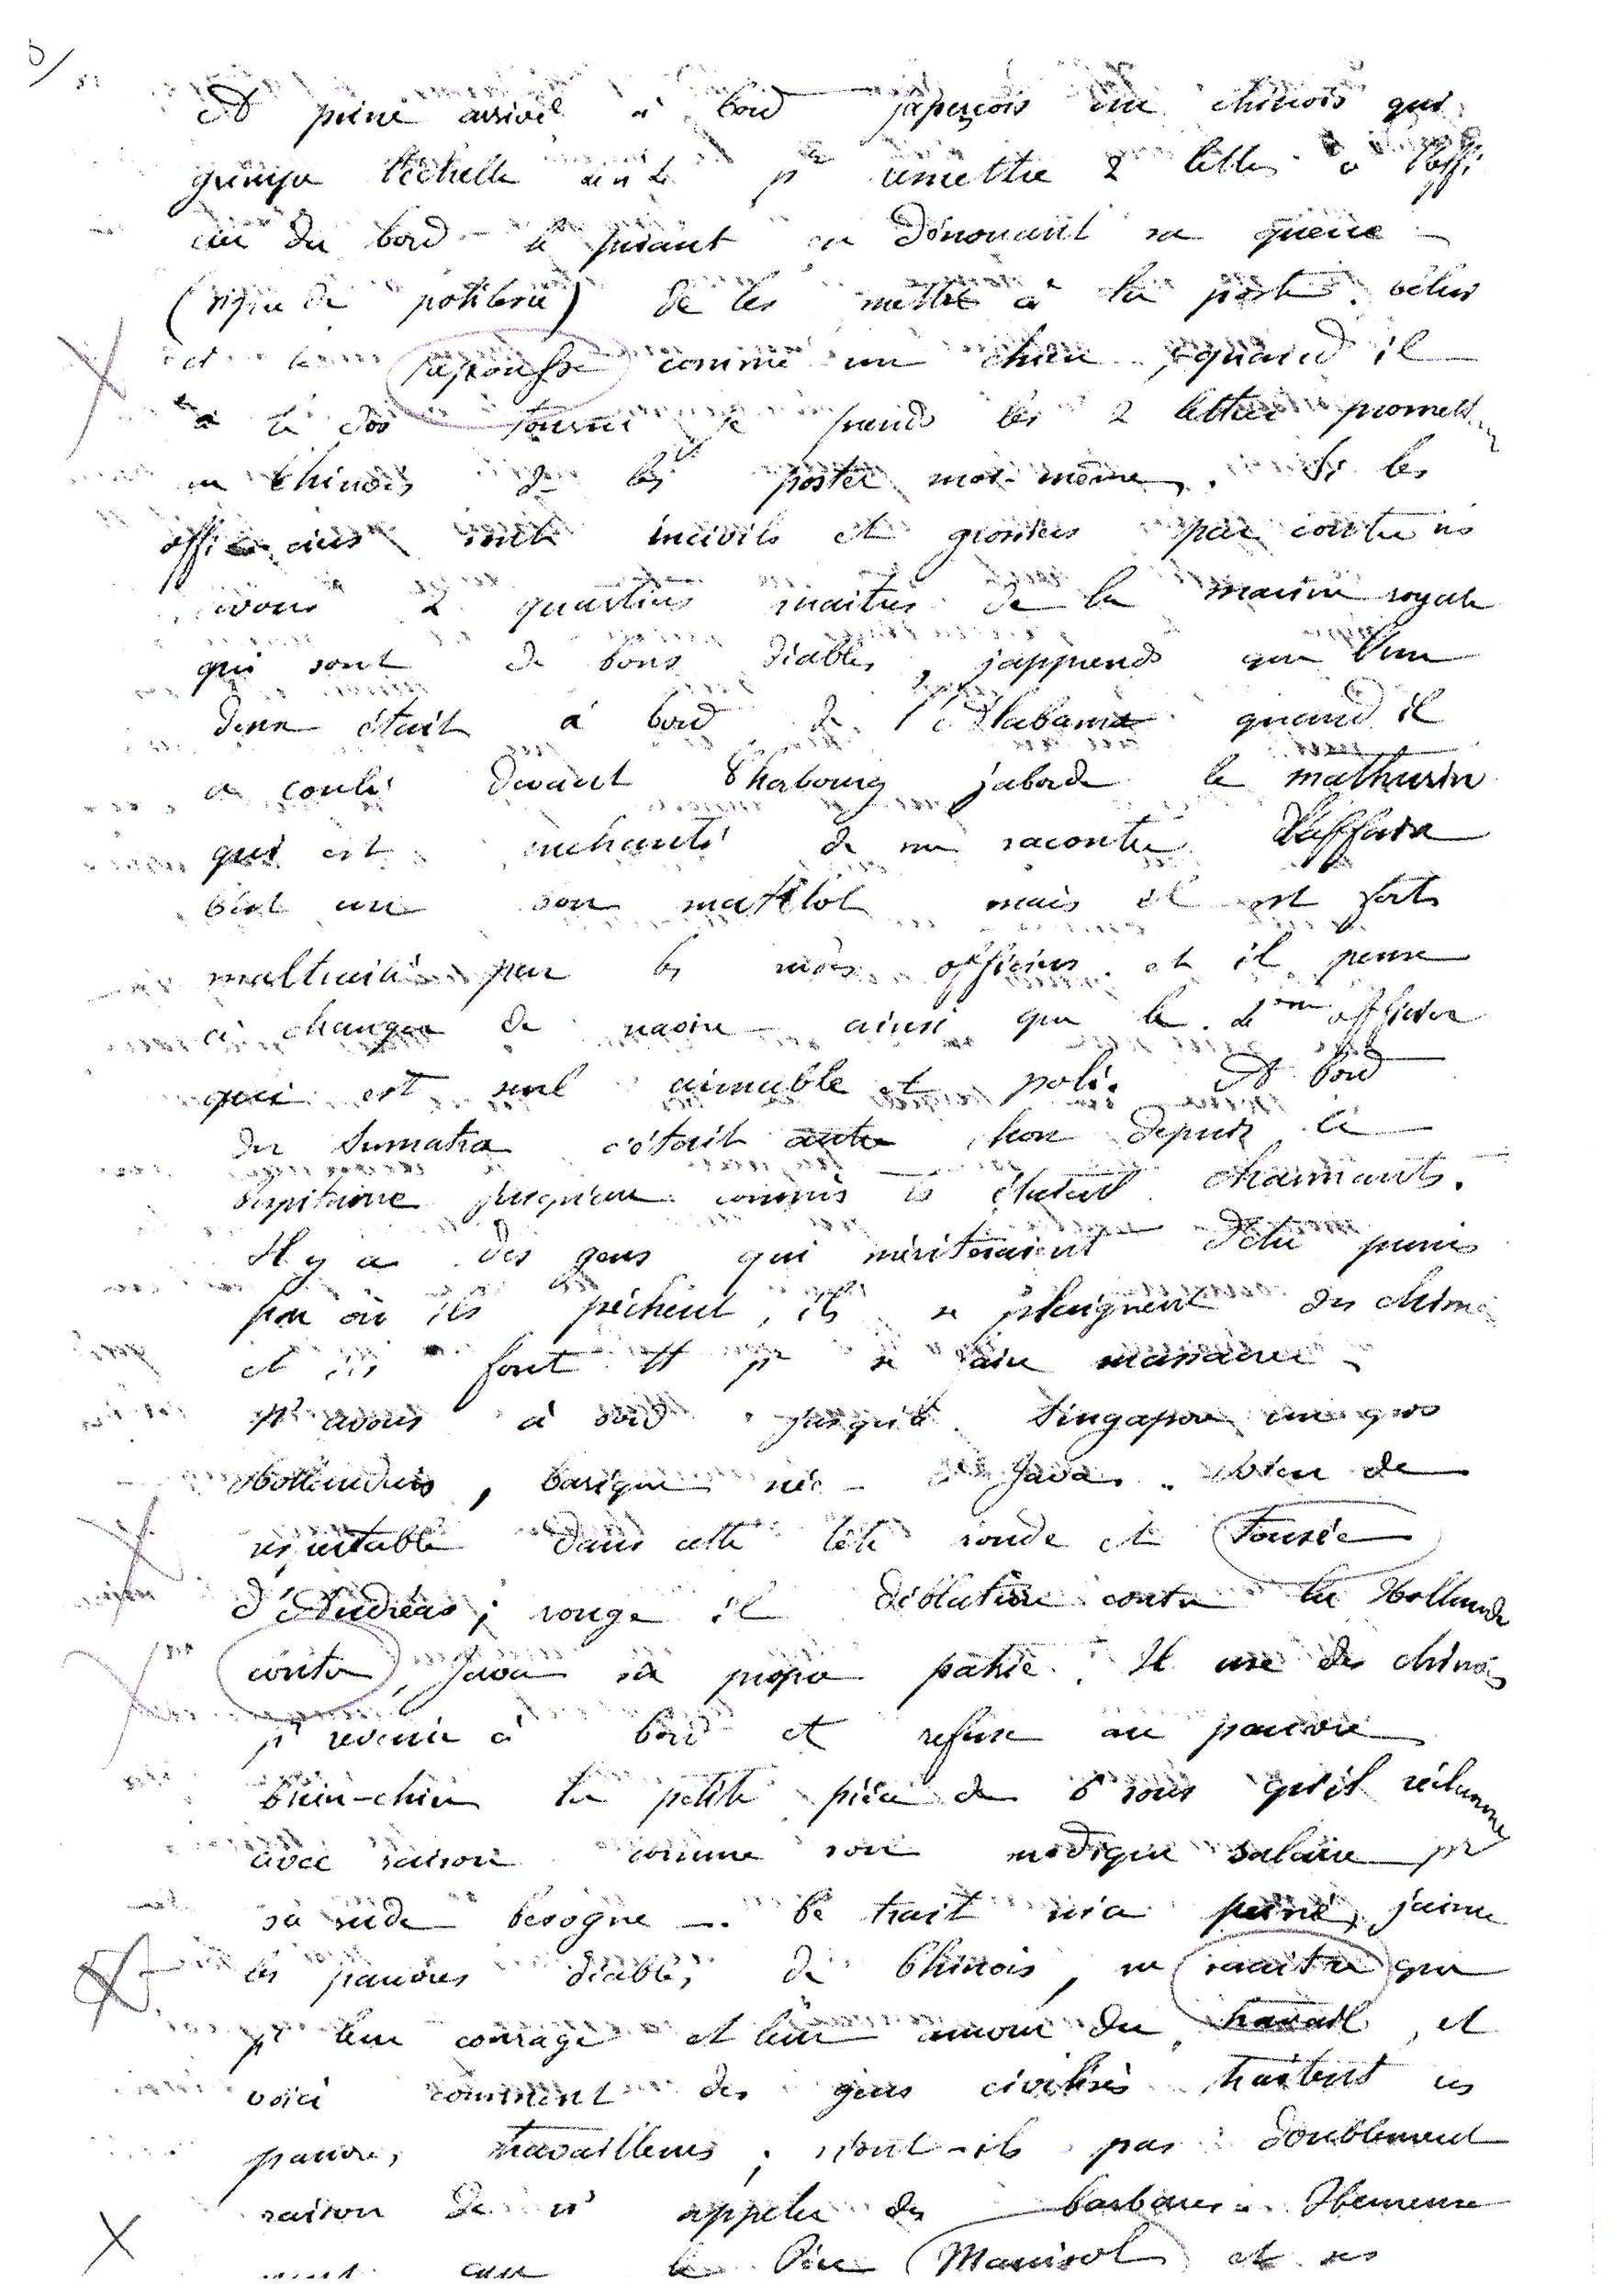 A peine arrivé à bord j'aperçois un chinois qui
grimpe l'échelle pr remettre 2 lettres à l'offi
cier du bord le priant en dénouant sa queue –
(signe de politesse) de les mettre à la poste. celui
ci le repousse comme un chien, quand il
a le dos tourné je prends les 2 lettres promett
au Chinois de les poster moi-même. Si les
officiers sont incivils et grossiers par contre ns
avons 2 quartiers maîtres de la marine royale
qui sont de bons diables, j'apprends que l'un
deux était à bord de l'Alabama quand il
a coulé devant Cherbourg j'aborde le mathurin
qui est enchanté de me raconter l'affaire
C'est un bon matelot mais il est fort
maltraité par les officiers et il pense
à changer de navire – ainsi que le 2me officier
qui est seul aimable et poli. A bord
du Sumatra c'était autre chose depuis le
Capitaine jusqu'au commis ts étaient charmants.
Il y a des gens qui mériteraient d'être punis
par où ils pêchent, ils se plaignent des chinois
et ils font tt pr se faire massacrer.
Ns avons à bord jusqu'à Singapour un gros
Hollandais, basique né à Java. Rien de
respectable dans cette tête ronde et
d'Andréas; rouge il déblatère contre la Hollande
contre Java sa propre patrie. Il use des chinois
pr revenir à bord et refuse au pauvre
la petite pièce de 6 sous qu'il réclame
avec raison comme son modique salaire pr
sa rude besogne –. Ce trait m'a peiné, j'aime
les pauvres diables de Chinois, ne que
pr leur courage et leur amour du travail, et
voici comment des gens civilisés traitent ces
pauvres travailleurs; n'ont-ils pas doublement
raison de ns appeler des barbares. Heureuse
ment que le Père et ses